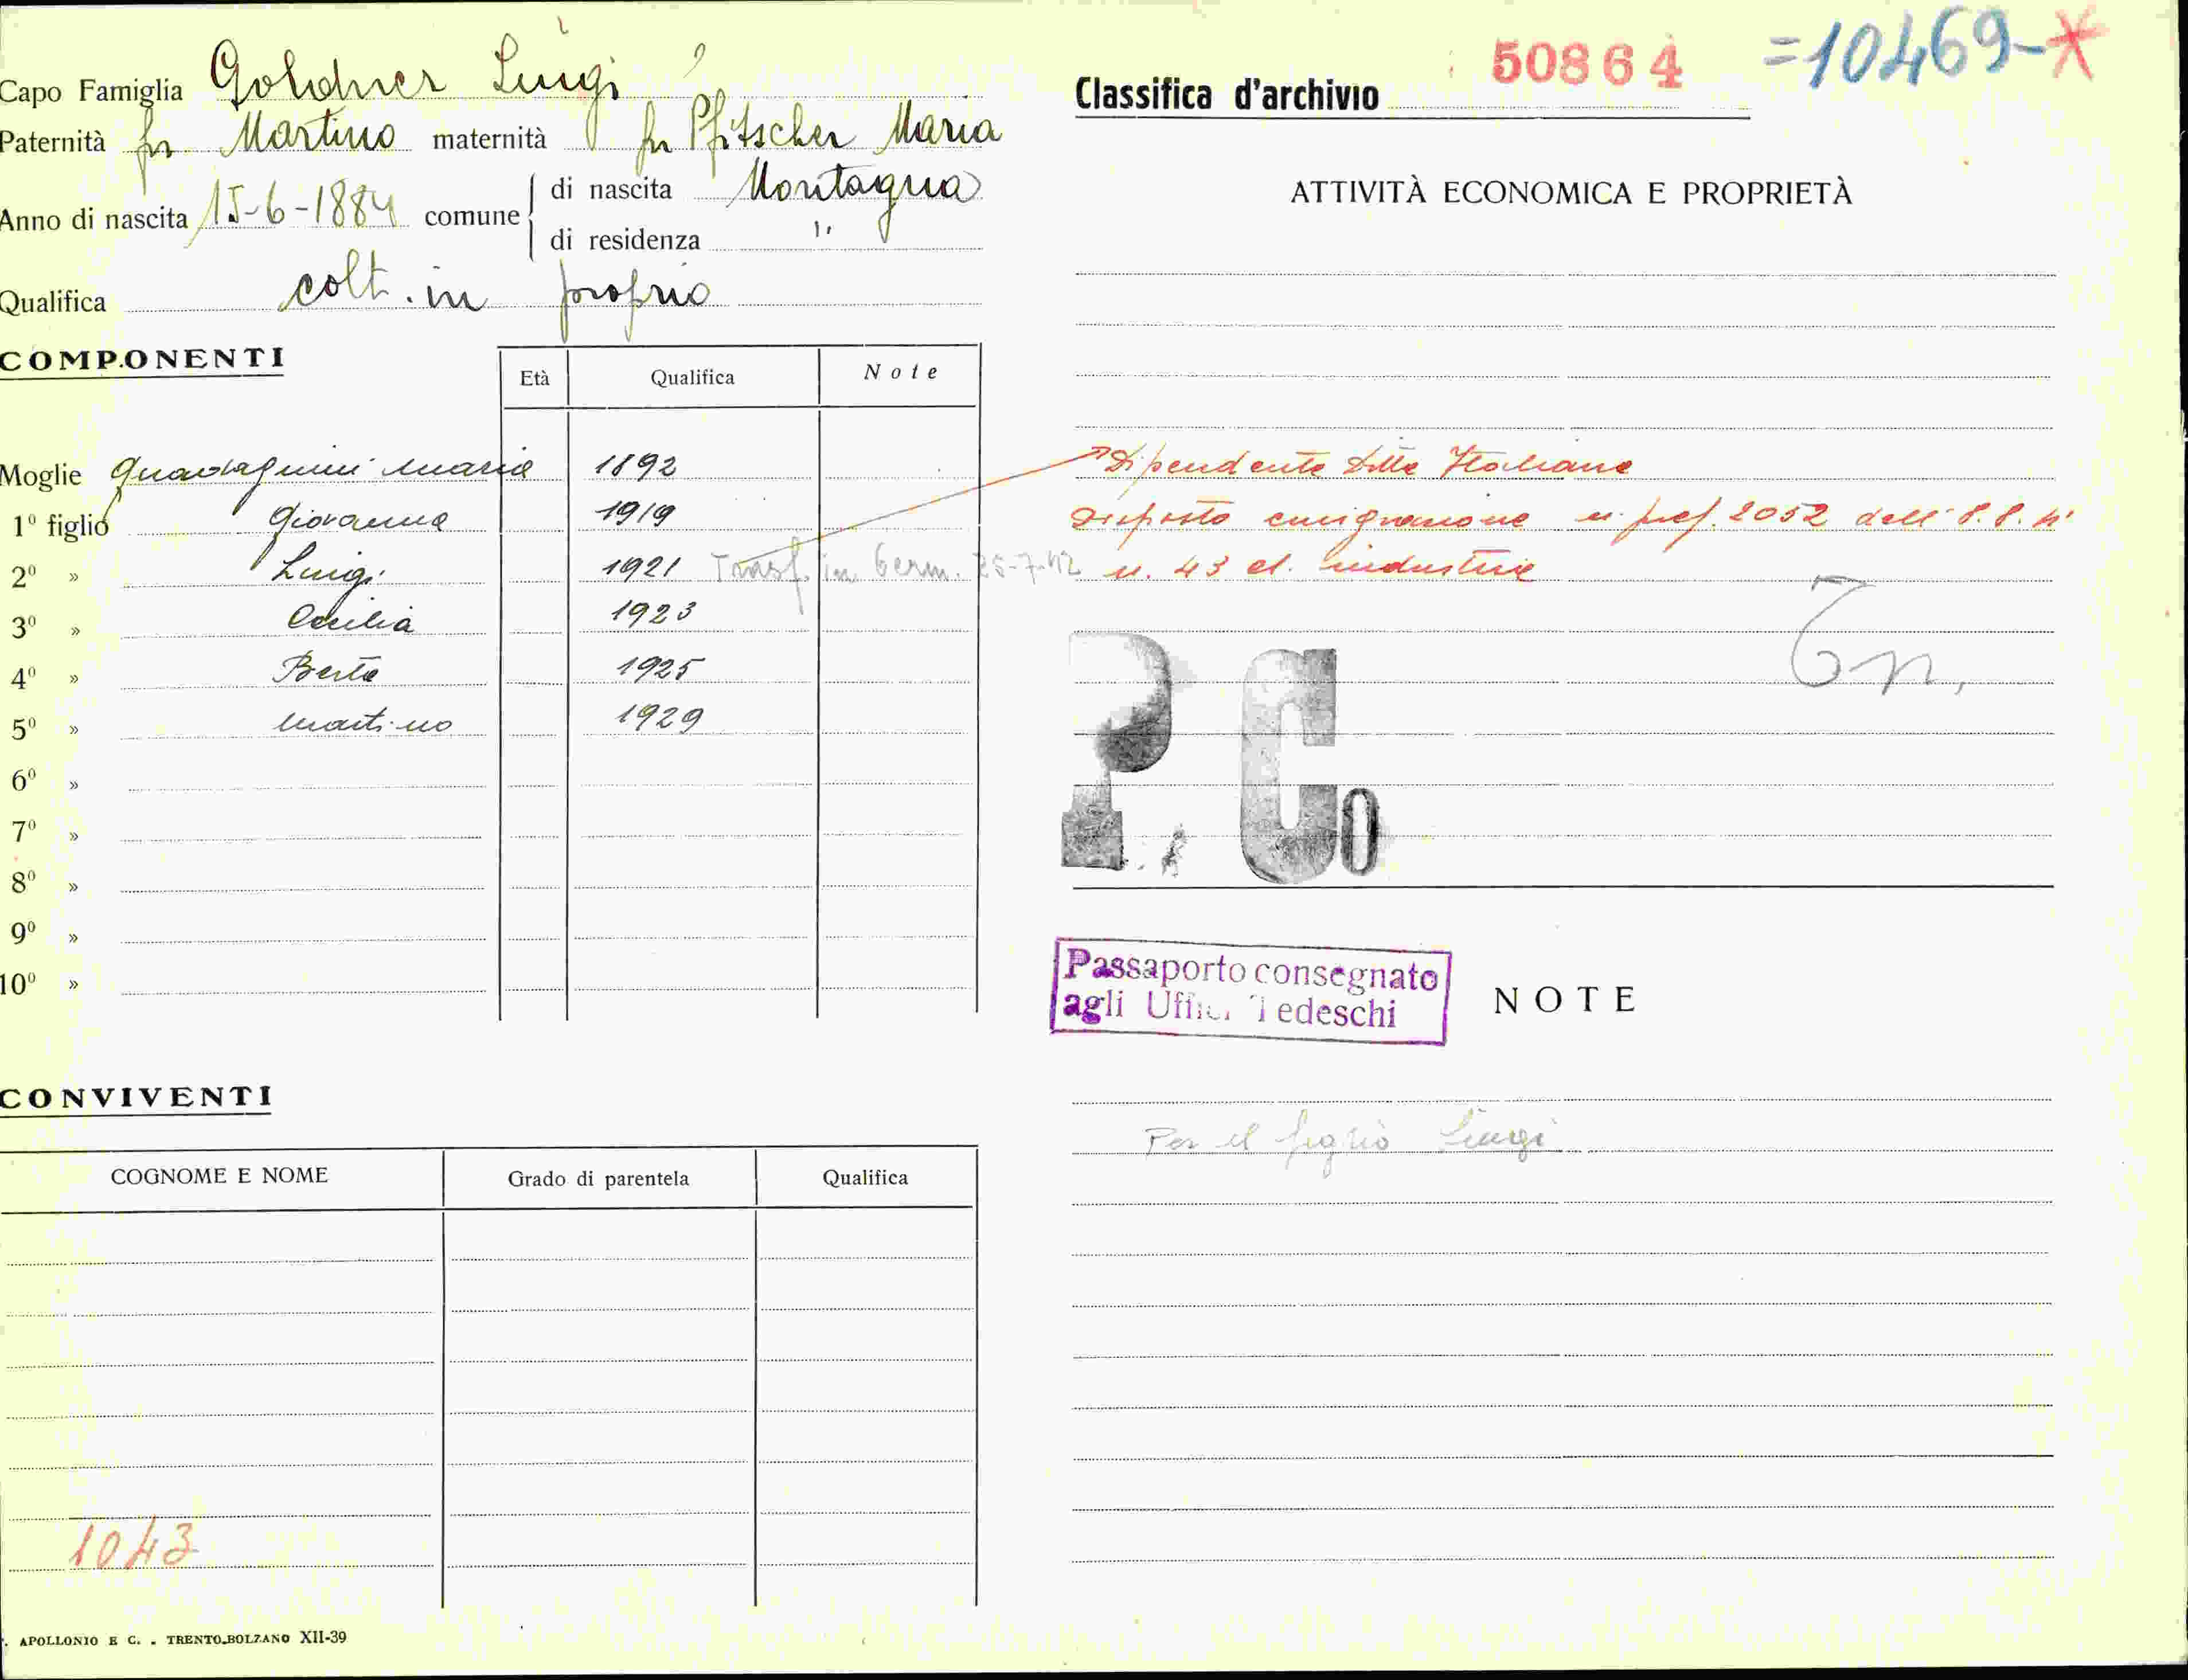 Capo Famiglia Goldner Luigi
Paternità fu Martino maternità fu Pfitscher Maria
Anno di nascita 15-6-1884 comune di nascita Montagna
di residenza "
Qualifica colt. in proprio
COMPONENTI
Età Qualifica Note
Moglie Guadagnini Maria 1892
1º figlio Giovanna 1919
2º » Luigi 1921 Trasf. in Germ. 25-7-42
3º » Cecilia 1923
4º » Berta 1925
5º » Martino 1929
6º »
7º »
8º »
9º »
10º »
CONVIVENTI
COGNOME E NOME Grado di parentela Qualifica
1043
. APOLLONIO E C. . TRENTO-BOLZANO XII-39
50864 =10469-X
Classifica d'archivio
ATTIVITÀ ECONOMICA E PROPRIETÀ
Dipendente Ditte Italiane
disposto emigrazione n. pref. 2052 dell' 8.8.41
n. 43 el. industrie
Tn.
P. Co
Passaporto consegnato
agli Uffici Tedeschi
NOTE
Per il figlio Luigi